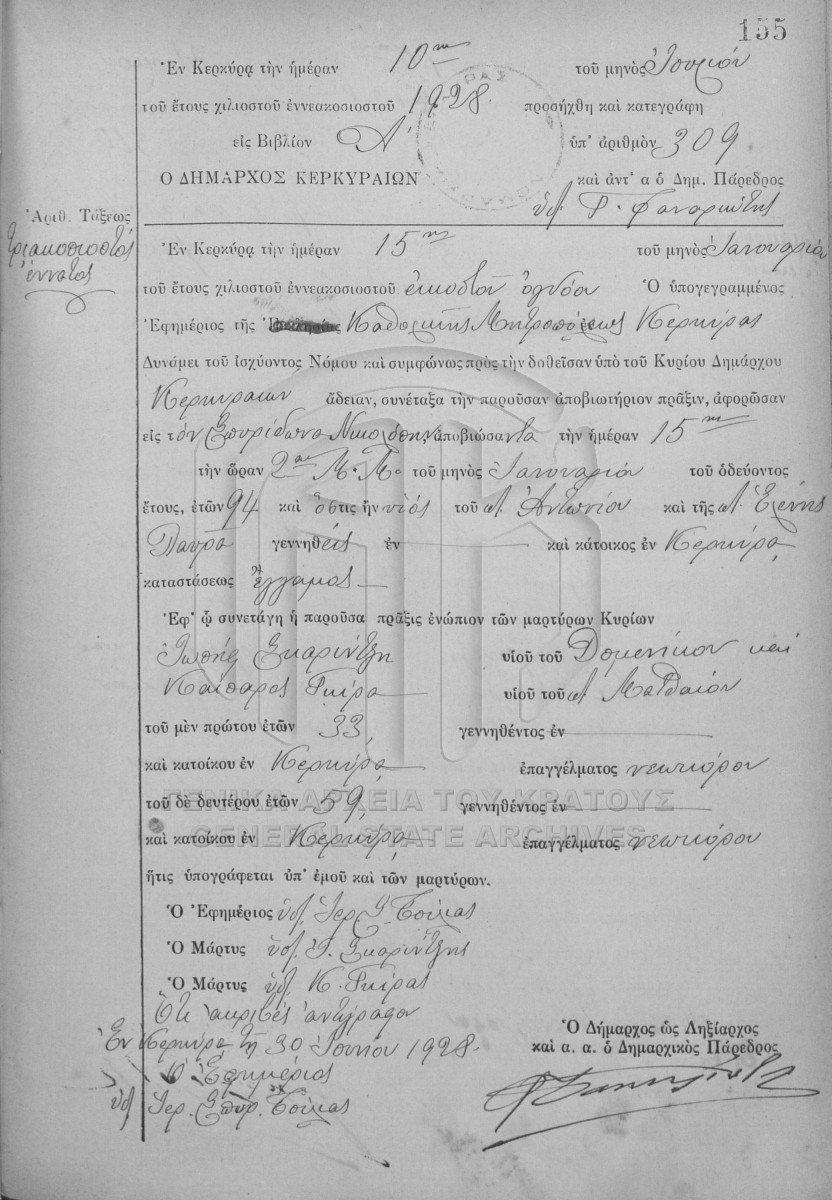 155
Ἐν Κερκύρᾳ τὴν ἡμέραν 10ην τοῦ μηνὸς
τοῦ ἔτους χιλιοστοῦ ἐννεακοσιοστοῦ 1928 προσήχθη καὶ κατεγράφη
εἰς Βιβλίον Α' ὑπ' ἀριθμὸν 309
Ο ΔΗΜΑΡΧΟΣ ΚΕΡΚΥΡΑΙΩΝ καὶ ἀντ' α ὁ Δημ. Πάρεδρος
Ἀριθ. Τάξεως
τριακοσιοστός
ἔννατος
Ἐν Κερκύρᾳ τὴν ἡμέραν 15ην τοῦ μηνὸς Ἰανουαρίου
τοῦ ἔτους χιλιοστοῦ ἐννεακοσιοστοῦ εἰκοστοῦ ὀγδόου Ὁ ὑπογεγραμμένος
Ἐφημέριος τῆς Καθολικῆς Μητροπόλεως Κερκύρας
Δυνάμει τοῦ ἰσχύοντος Νόμου καὶ συμφώνως πρὸς τὴν δοθεῖσαν ὑπὸ τοῦ Κυρίου Δημάρχου
Κερκυραίων ἄδειαν, συνέταξα τὴν παροῦσαν ἀποβιωτήριον πρᾶξιν, ἀφορῶσαν
εἰς τὸν Σπυρίδωνα ἀποβιώσαντα τὴν ἡμέραν 15ην
τὴν ὥραν 2αν Μ.Μ. τοῦ μηνὸς Ἰανουαρίου τοῦ ὁδεύοντος
ἔτους, ἐτῶν 94 καὶ ὅστις ἦν υἱός τοῦ Ἀντωνίου καὶ τῆς Ἑλένης
γεννηθείς ἐν καὶ κάτοικος ἐν Κερκύρᾳ
καταστάσεως ἔγγαμος
Ἐφ' ᾧ συνετάγη ἡ παροῦσα πρᾶξις ἐνώπιον τῶν μαρτύρων Κυρίων
Ἰωσήφ Σκαρίντζη υἱοῦ τοῦ Δομενίκου καί
Καίσαρος Γκίρα υἱοῦ τοῦ Ματθαίου
τοῦ μὲν πρώτου ἐτῶν 33, γεννηθέντος ἐν
καὶ κατοίκου ἐν Κερκύρᾳ ἐπαγγέλματος νεωκόρου
τοῦ δὲ δευτέρου ἐτῶν 59, γεννηθέντος ἐν
ΓΕΝΙΚΑ ΑΡΧΕΙΑ ΤΟΥ ΚΡΑΤΟΥΣ
GENERAL STATE ARCHIVES
καὶ κατοίκου ἐν Κερκύρᾳ ἐπαγγέλματος νεωκόρου
ἥτις ὑπογράφεται ὑπ' ἐμοῦ καὶ τῶν μαρτύρων.
Ὁ Ἐφημέριος ὑπ. Ἱερ. Σ.
Ὁ Μάρτυς ὑπ. Ἰ. Σκαρίντζης
Ὁ Μάρτυς ὑπ. Κ. Γκίρας
Ὅτι ἀκριβές ἀντίγραφον
Ἐν Κερκύρᾳ τῇ 30 Ἰουνίου 1928
Ὁ Ἐφημέριος
ὑπ. Ἱερ. Σπυρ.
Ὁ Δήμαρχος ὡς Ληξίαρχος
καὶ α. α. ὁ Δημαρχικὸς Πάρεδρος